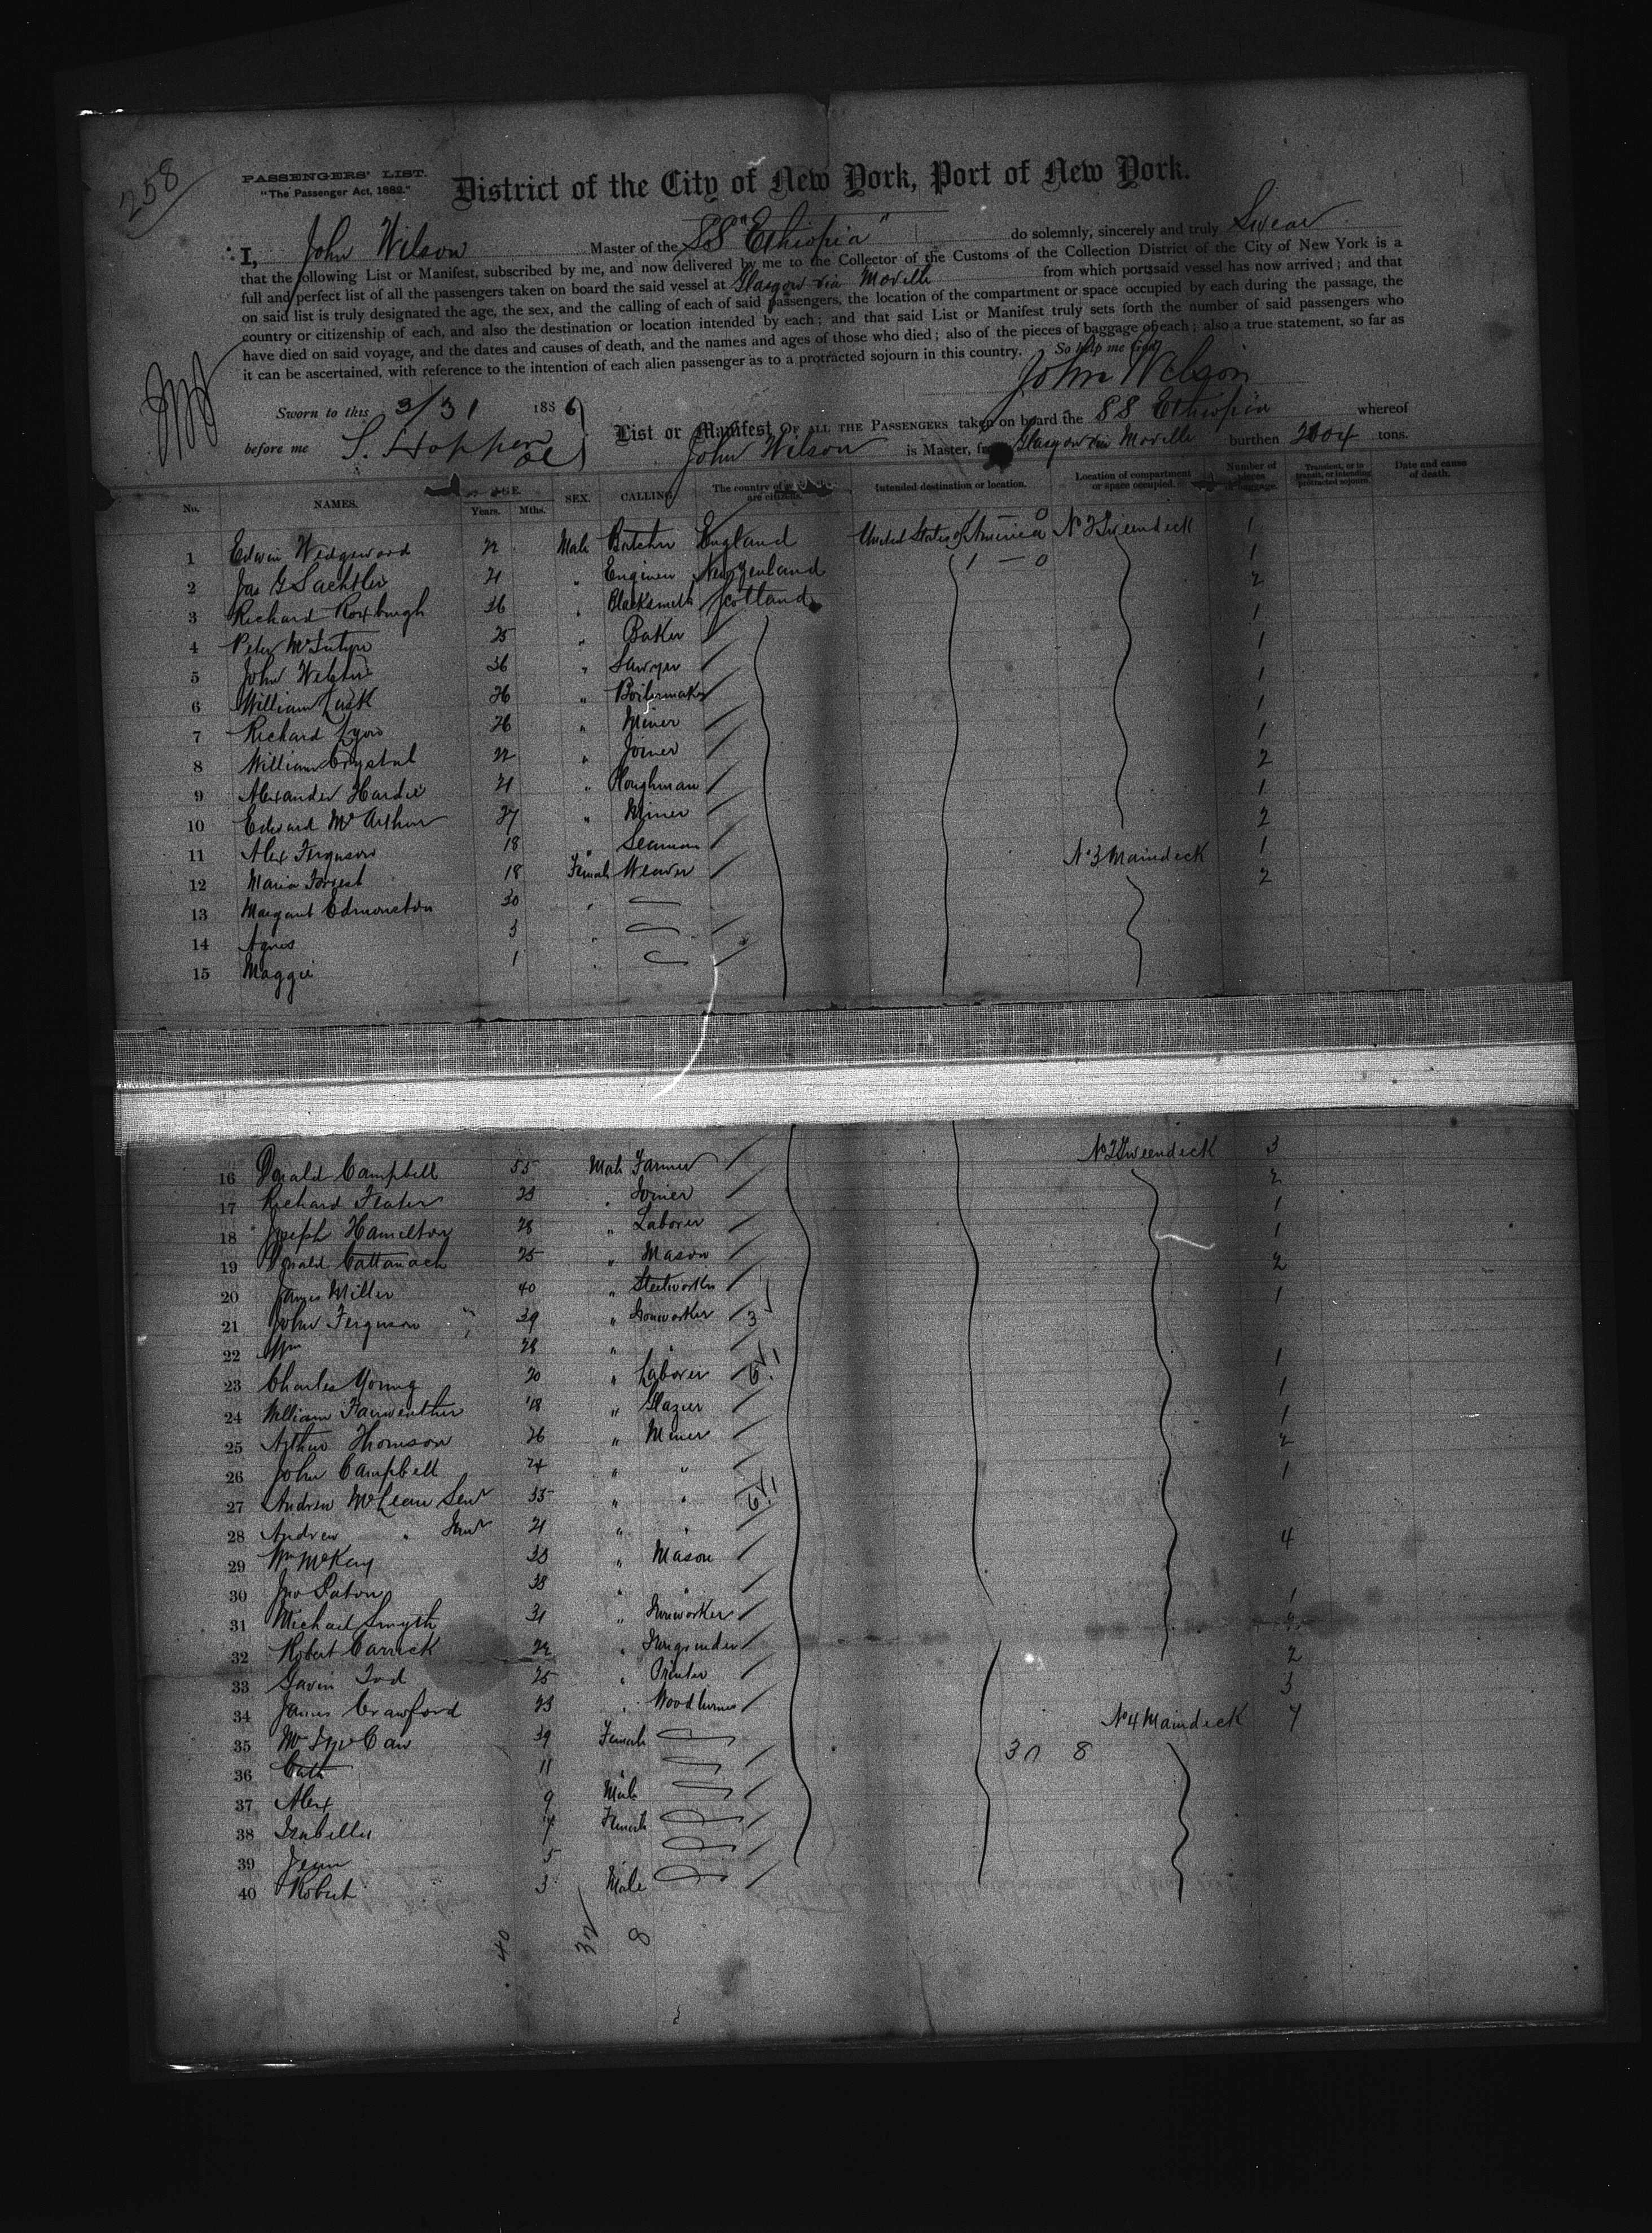 258
PASSENGERS' LIST.
"The Passenger Act, 1882."
District of the City of New York, Port of New York.
I, John Wilson Master of the SS "Ethiopia" do solemnly, sincerely and truly Swear
that the following List or Manifest, subscribed by me, and now delivered by me to the Collector of the Customs of the Collection District of the City of New York is a
full and perfect list of all the passengers taken on board the said vessel at Glasgow via Moville from which port said vessel has now arrived; and that
on said list is truly designated the age, the sex, and the calling of each of said passengers, the location of the compartment or space occupied by each during the passage, the
country or citizenship of each, and also the destination or location intended by each; and that said List or Manifest truly sets forth the number of said passengers who
have died on said voyage, and the dates and causes of death, and the names and ages of those who died; also of the pieces of baggage of each; also a true statement, so far as
it can be ascertained, with reference to the intention of each alien passenger as to a protracted sojourn in this country. So help me God
John Wilson
Sworn to this 3/31 1886
before me S. Hopper
List or Manifest OF ALL THE PASSENGERS taken on board the SS Ethiopia whereof
John Wilson is Master, from Glasgow via Moville burthen 2004 tons.
No. NAMES. AGE. Years. Mths. SEX. CALLING. The country of which they are citizens. Intended destination or location. Location of compartment or space occupied. Number of pieces of baggage. Transient, or in transit, or intending protracted sojourn. Date and cause of death.
1 Edwin Wedgeword 22 Male Butcher England United States of America No 2 Tweendeck 1
2 Jas G 21 " Engineer New Zealand 1 — 0 1
3 Richard Roxburgh 36 " Blacksmith Scotland 2
4 Peter McIntyre 25 " Baker 1
5 John Webster 36 " Sawyer 1
6 William Lusk 26 " Boilermaker 1
7 Richard Lyons 26 " Miner 1
8 William Crystal 22 " Joiner 1
9 Alexander Hardie 21 " Ploughman 2
10 Edward McArthur 37 " Miner 1
11 Alex Ferguson 18 " Seaman 2
12 Maria Forrest 18 Female Weaver No 3 Maindeck 1
13 Margaret Edmonston 30 " 2
14 Agnes 3 "
15 Maggie 1
16 Donald Campbell 55 Male Farmer No 2 Tweendeck 3
17 Richard Flater 23 " Joiner 2
18 Joseph Hamilton 28 " Laborer 1
19 Donald Cattanach 25 " Mason 1
20 James Miller 40 " Steelworker 2
21 John Ferguson 39 " Ironworker 3 1
22 Wm 28 " "
23 Charles Young 20 " Laborer 1
24 William Fairweather 18 " Glazier 1
25 Arthur Thomson 26 " Miner 1
26 John Campbell 24 " " 2
27 Andrew McLean Senr 55 " " 1
28 Andrew " Junr 21 " "
29 Wm McKay 33 " Mason 4
30 Jno Paton 38 " "
31 Michael Smyth 31 " Ironworker 1
32 Robert Carrick 22 " Irongrinder
33 Gavin Tod 25 " Printer 2
34 James Crawford 23 " Woodturner 3
35 39 Female No 4 Maindeck 7
36 Cath 11 " 30 8
37 Alex 9 Male
38 Isabella 7 Female
39 Jean 5 "
40 Robert 3 Male
40 32 8